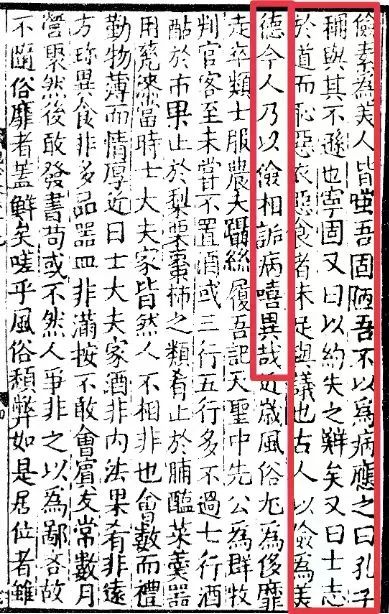 儉素為美人皆蚩吾固陋吾不以為病應之曰孔子
稱與其不遜也寧固又曰以約失之鮮矣又曰士志
於道而恥惡衣惡食者未足與議也古人以儉為美
德今人乃以儉相詬病嘻異哉近歲風俗尤為侈靡
走卒類士服農夫躡絲履吾記天聖中先公為群牧
判官客至未嘗不置酒或三行五行多不過七行酒
酤於市果止於梨栗棗柿之類肴止於脯醢菜羹器
用甆漆當時士大夫家皆然人不相非也會數而禮
勤物薄而情厚近日士大夫家酒非內法果肴非遠
方珍異食非多品器皿非滿按不敢會賓友常數月
營聚然後敢發書苟或不然人爭非之以為鄙吝故
不隨俗靡者蓋鮮矣嗟乎風俗頹弊如是居位者雖